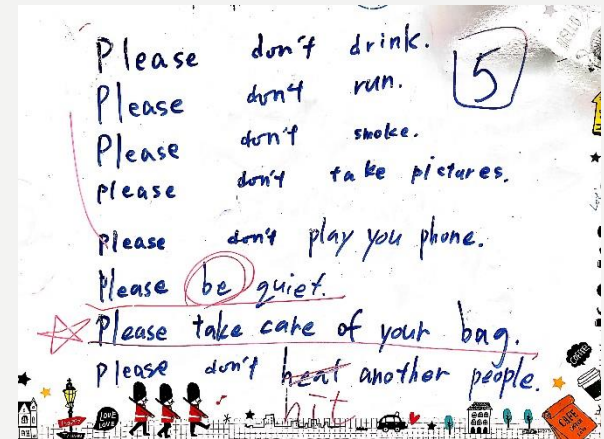 Please don't drink.
5
Please don't run.
Please don't smoke.
please don't take pictures.
Please don't play you phone.
Please be quiet.
Please take care of your bag.
please don't heat another people.
hit
LOVE
LOVE